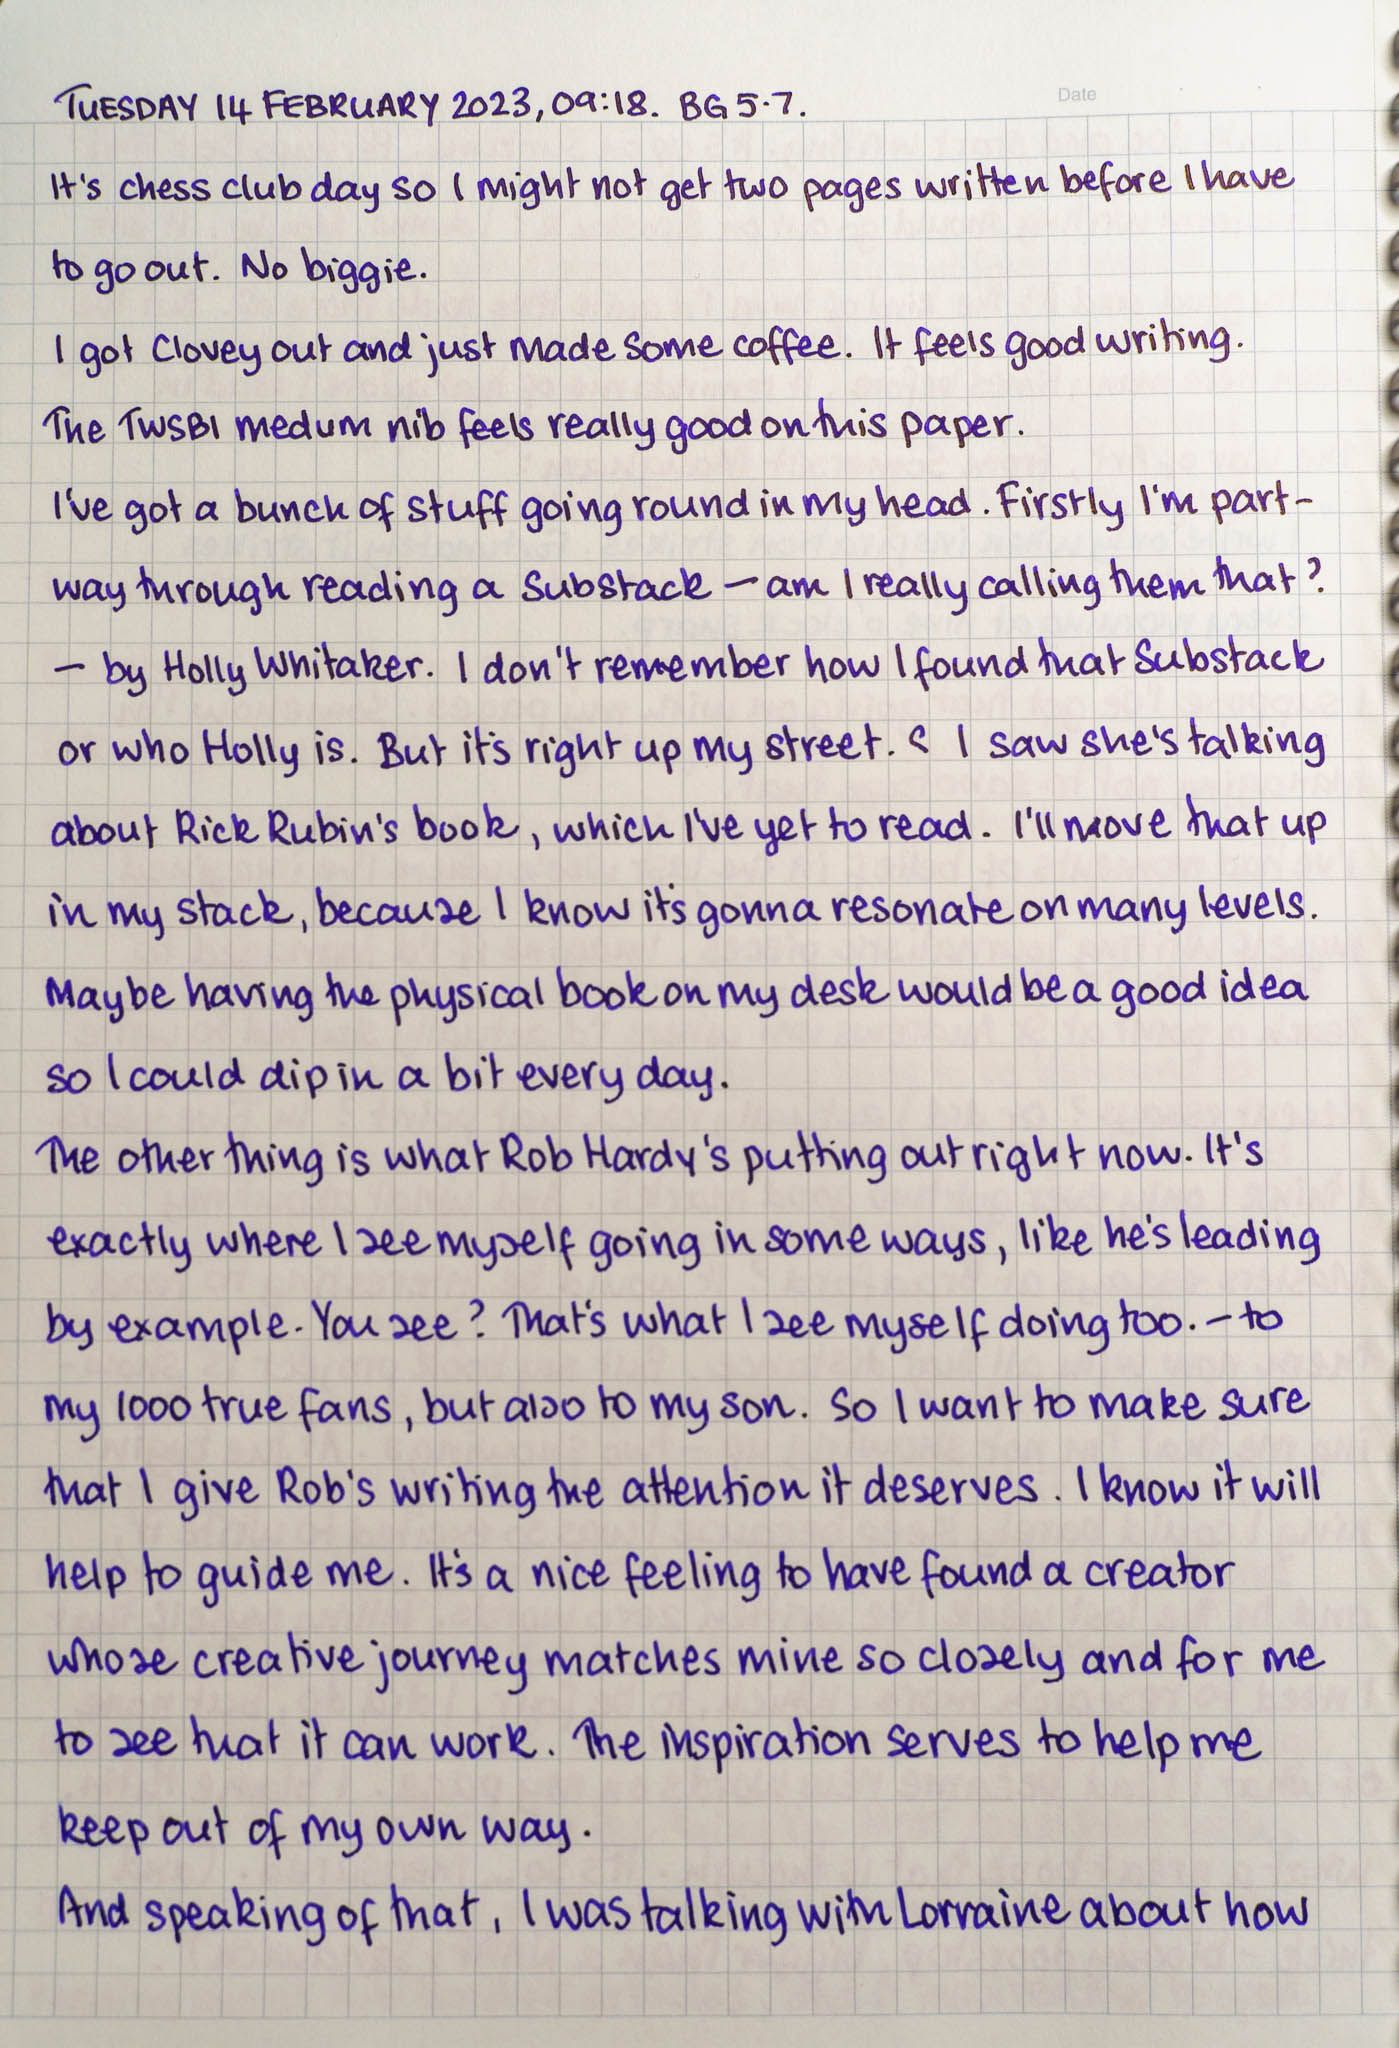 Date
TUESDAY 14 FEBRUARY 2023, 09:18. BG 5.7.
It's chess club day so I might not get two pages written before I have
to go out. No biggie.
I got Clovey out and just made some coffee. It feels good writing.
The TWSBI medum nib feels really good on this paper.
I've got a bunch of stuff going round in my head. Firstly I'm part-
way through reading a Substack – am I really calling them that?
– by Holly Whitaker. I don't remember how I found that Substack
or who Holly is. But it's right up my street. I saw she's talking
about Rick Rubin's book, which I've yet to read. I'll move that up
in my stack, because I know it's gonna resonate on many levels.
Maybe having the physical book on my desk would be a good idea
so I could dip in a bit every day.
The other thing is what Rob Hardy's putting out right now. It's
exactly where I see myself going in some ways, like he's leading
by example. You see? That's what I see myself doing too. – to
my 1000 true fans, but also to my son. So I want to make sure
that I give Rob's writing the attention it deserves. I know it will
help to guide me. It's a nice feeling to have found a creator
whose creative journey matches mine so closely and for me
to see that it can work. The inspiration serves to help me
keep out of my own way.
And speaking of that, I was talking with Lorraine about how